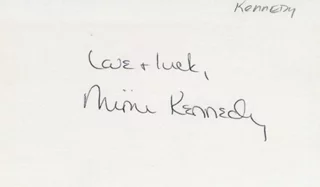 KENNEDY
Love + luck,
Mimi Kennedy